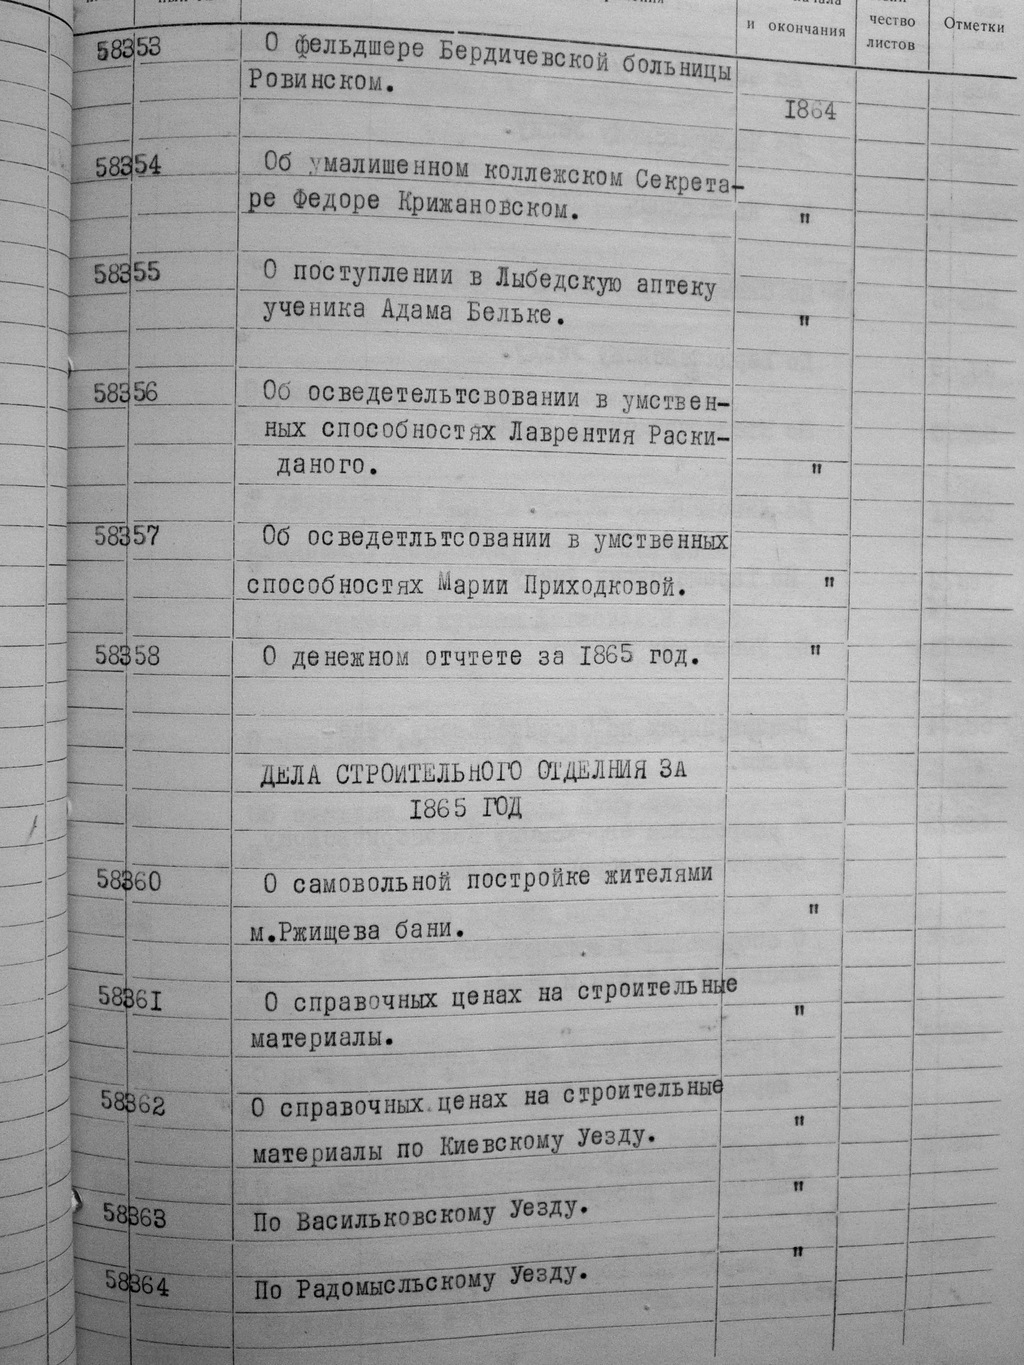 и окончания
чество
листов
Отметки
58353 О фельдшере Бердичевской больницы
Ровинском.
1864
58354 Об умалишенном коллежском Секрета-
ре Федоре Крижановском. "
58355 О поступлении в Лыбедскую аптеку
ученика Адама Бельке. "
58356 Об осведетельтсвовании в умствен-
ных способностях Лаврентия Раски-
даного. "
58357 Об осведетльтсовании в умственных
способностях Марии Приходковой. "
58358 О денежном отчтете за 1865 год. "
ДЕЛА СТРОИТЕЛЬНОГО ОТДЕЛНИЯ ЗА
1865 ГОД
58360 О самовольной постройке жителями
м.Ржищева бани. "
58361 О справочных ценах на строительные
материалы. "
58362 О справочных ценах на строительные
материалы по Киевскому Уезду. "
58363 По Васильковскому Уезду. "
58364 По Радомысльскому Уезду. "